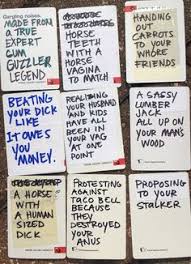 Gargling noises.
MADE FROM
A TRUE
EXPERT
CUM
GUZZLER
LEGEND
HORSE
TEETH
WITH A
HORSE
VAGINA
TO MATCH
HANDING
OUT
CARROTS
TO YOUR
WHORE
FRIENDS
BEATING
YOUR DICK
LIKE
IT OWES
YOU
MONEY.
REALIZING
YOUR HUSBAND
AND KIDS
HAVE ALL
BEEN IN
YOUR VAG
AT ONE
POINT
A SASSY
LUMBER
JACK
ALL UP ON
YOUR MAN'S
WOOD
A HORSE
WITH A
HUMAN
SIZED
DICK
PROTESTING
AGAINST
TACO BELL
BECAUSE
THEY
DESTROYED
YOUR
ANUS
PROPOSING
TO YOUR
STALKER